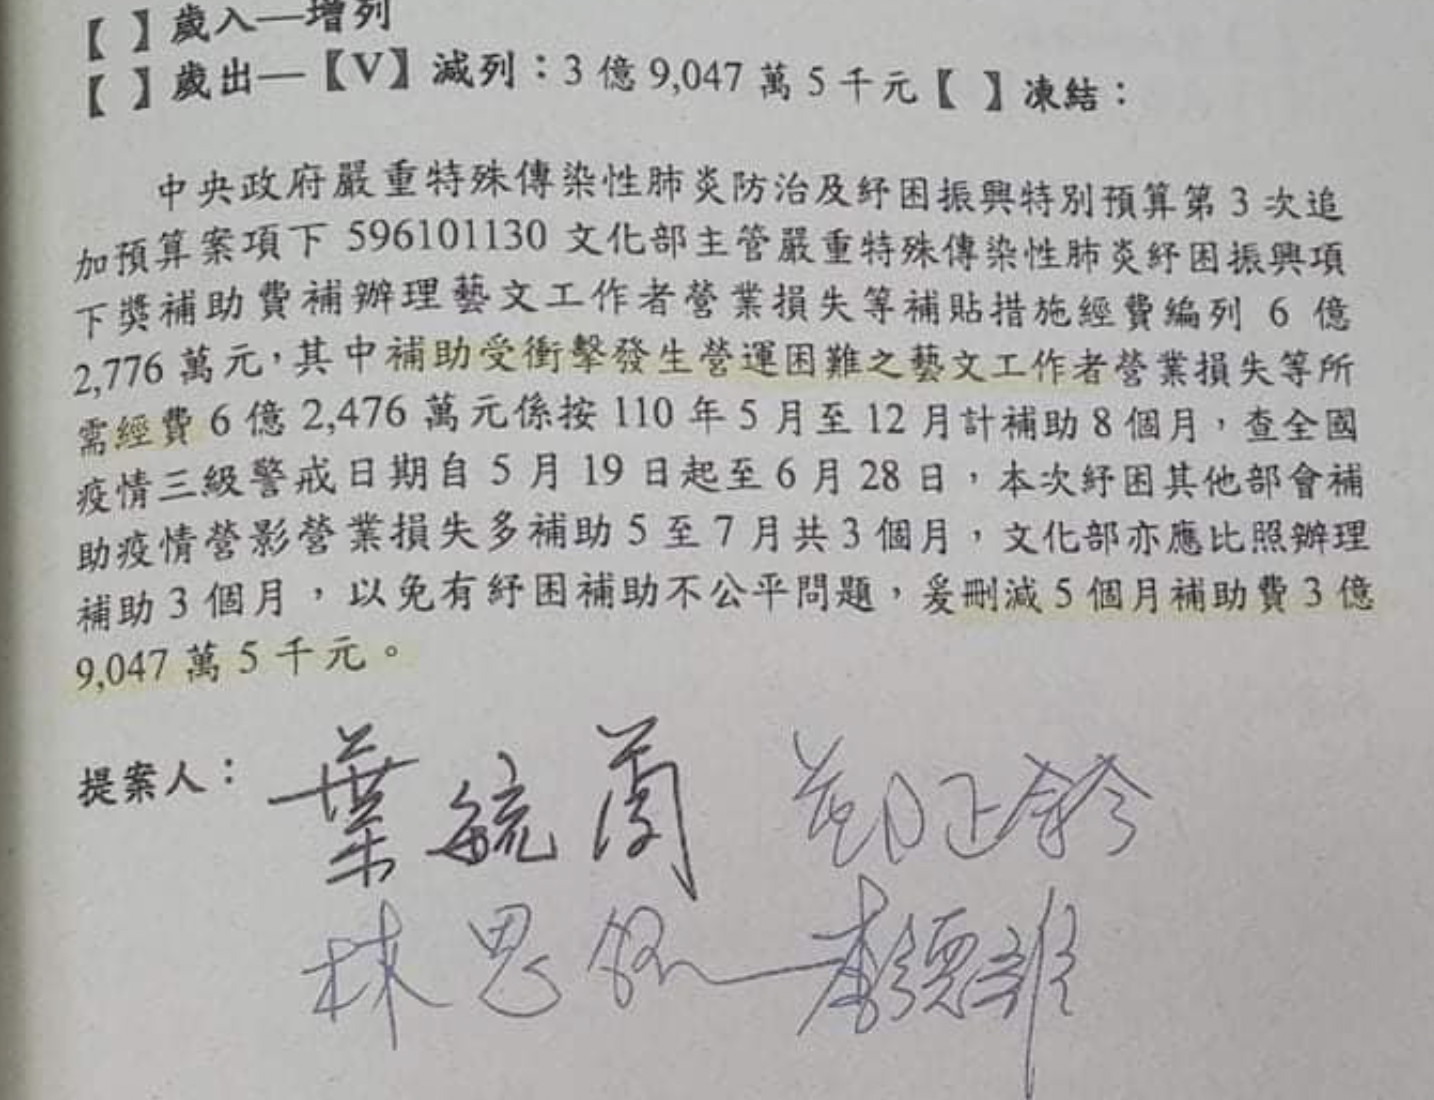 【 】歲入—增列
【 】歲出—【V】減列：3 億 9,047 萬 5 千元【 】凍結：
中央政府嚴重特殊傳染性肺炎防治及紓困振興特別預算第 3 次追
加預算案項下 596101130 文化部主管嚴重特殊傳染性肺炎紓困振興項
下獎補助費補辦理藝文工作者營業損失等補貼措施經費編列 6 億
2,776 萬元，其中補助受衝擊發生營運困難之藝文工作者營業損失等所
需經費 6 億 2,476 萬元係按 110 年 5 月至 12 月計補助 8 個月，查全國
疫情三級警戒日期自 5 月 19 日起至 6 月 28 日，本次紓困其他部會補
助疫情營影營業損失多補助 5 至 7 月共 3 個月，文化部亦應比照辦理
補助 3 個月，以免有紓困補助不公平問題，爰刪減 5 個月補助費 3 億
9,047 萬 5 千元。
提案人：葉毓蘭 鄭正鈐
林思銘